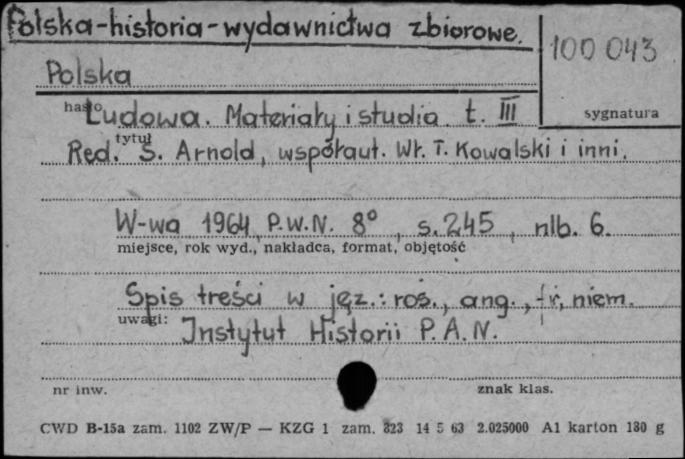 Polska-historia-wydawnictwa zbiorowe.
100 043
Polska
hasło
Ludowa. Materiały i studia t. III
sygnatura
tytuł
Red. S. Arnold, współaut. Wł. T. Kowalski i inni.
W-wa 1964, P.W.N. 8°, s. 245, nlb. 6.
miejsce, rok wyd., nakładca, format, objętość
Spis treści w jęz.: roś., ang., fr, niem.
uwagi:
Instytut Historii P.A.N.
nr inw.
znak klas.
CWD B-15a zam. 1102 ZW/P — KZG 1 zam. 823 14 5 63 2.025000 A1 karton 180 g